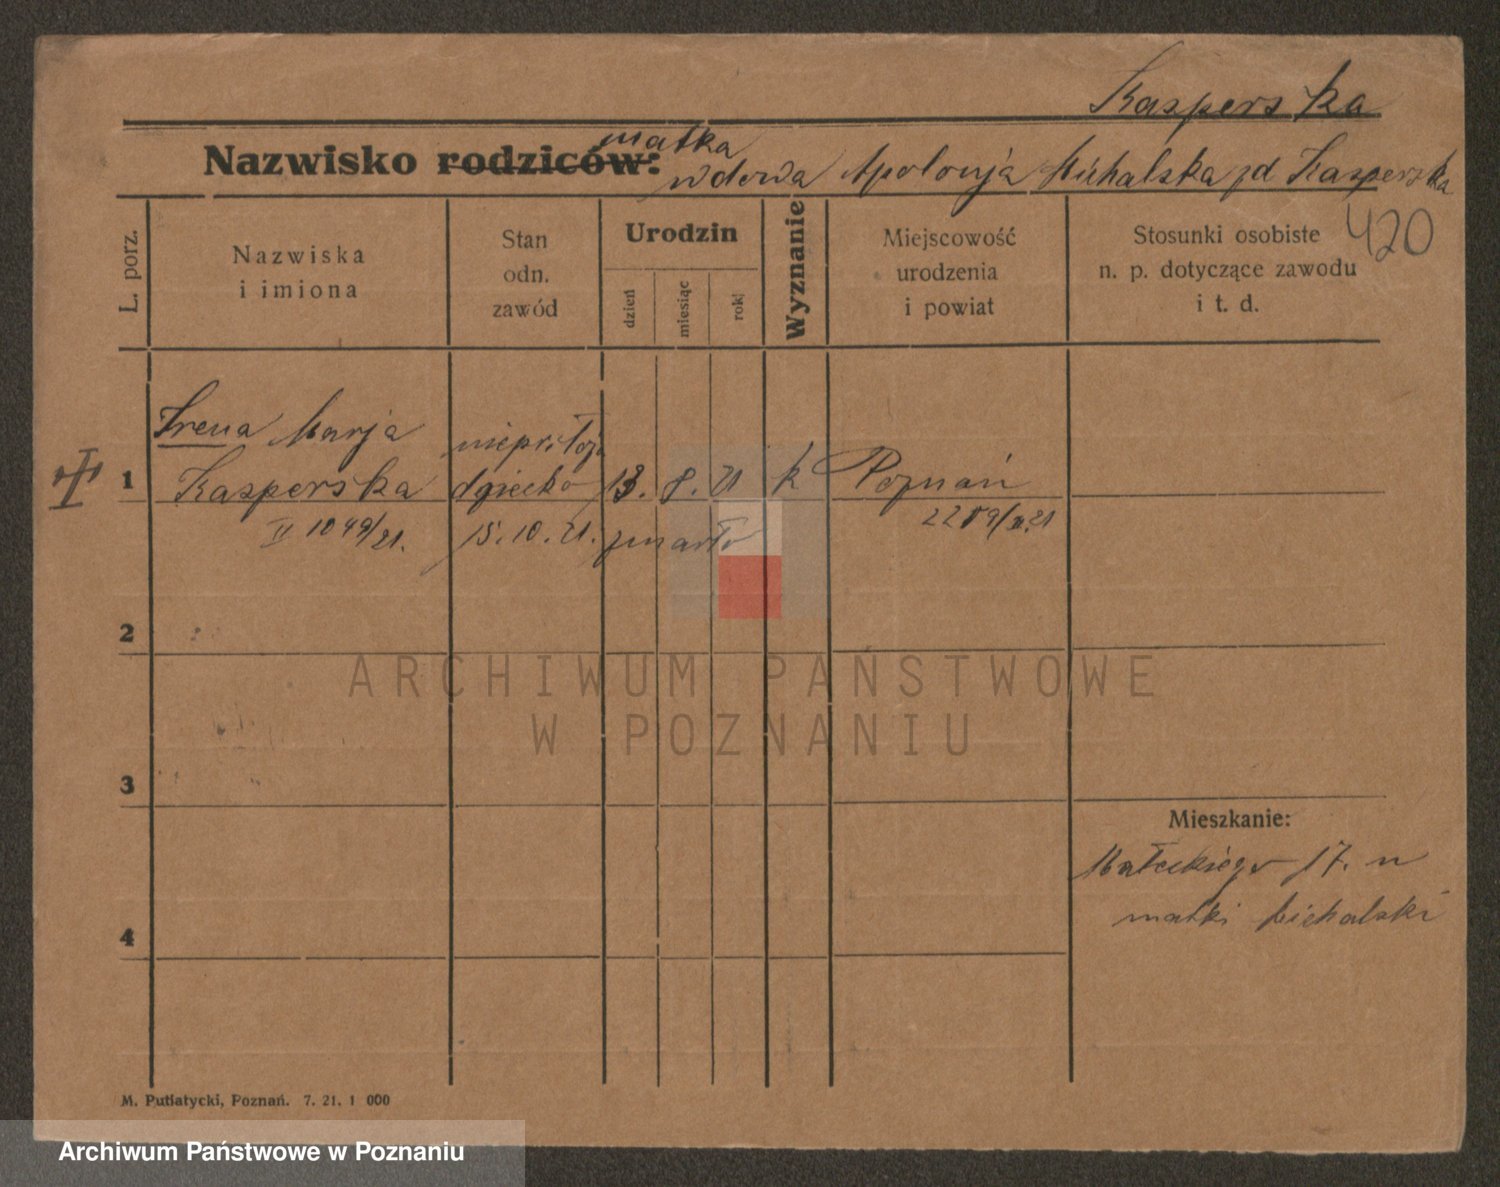 Kasperska
matka
Nazwisko rodziców:
wdowa Apolonja Michalska zd Kasperska
420
L. porz.
Nazwiska
i imiona
Stan
odn.
zawód
Urodzin
dzień
miesiąc
rok
Wyznanie
Miejscowość
urodzenia
i powiat
Stosunki osobiste
n. p. dotyczące zawodu
i t. d.
Irena Marja
1 Kasperska
dziecko 13. 8. 21 k Poznań
II 1049/21.
15. 10. 21. zmarło
2
3
4
Mieszkanie:
Małeckiego 17. u
matki Michalski
ARCHIWUM PAŃSTWOWE
W POZNANIU
M. Putiatycki, Poznań. 7. 21. 1 000
Archiwum Państwowe w Poznaniu